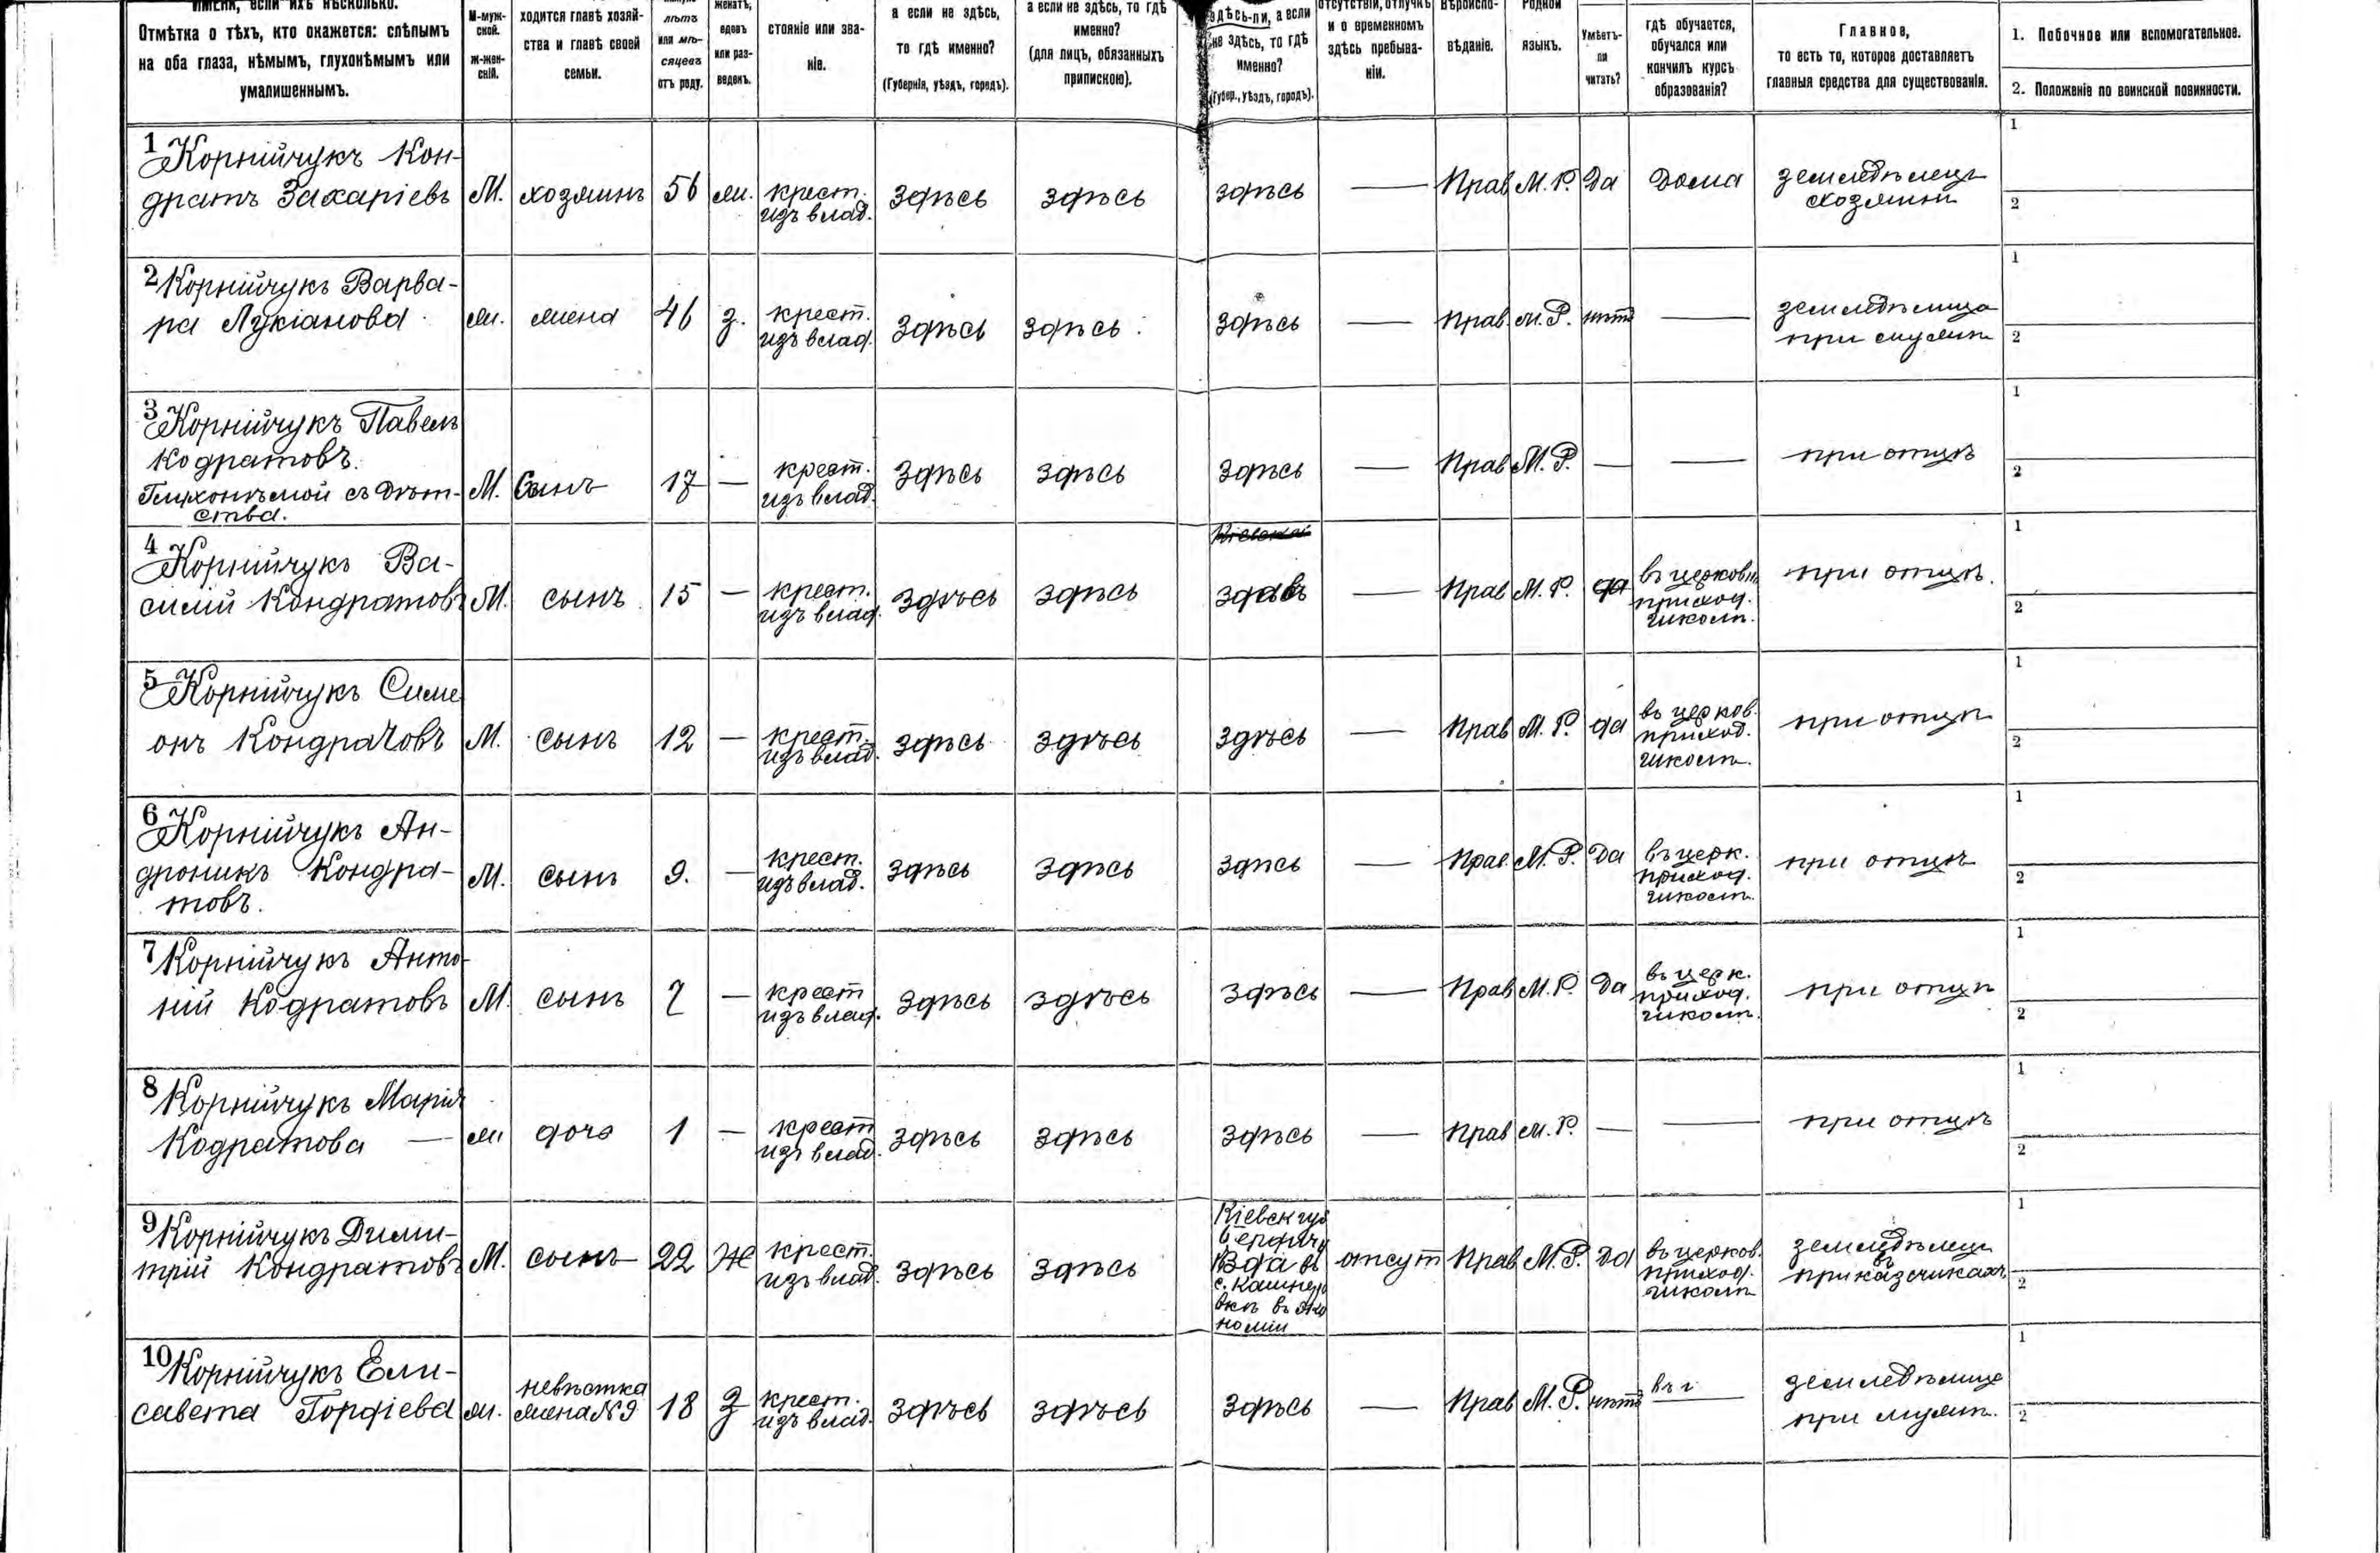 имени, если ихъ нѣсколько.
Отмѣтка о тѣхъ, кто окажется: слѣпымъ
на оба глаза, нѣмымъ, глухонѣмымъ или
умалишеннымъ.
М-муж-
ской.
Ж-жен-
скій.
ходится главѣ хозяй-
ства и главѣ своей
семьи.
лѣтъ
или мѣ-
сяцевъ
отъ роду.
женатъ,
вдовъ
или раз-
веденъ.
стояніе или зва-
ніе.
а если не здѣсь,
то гдѣ именно?
(Губернія, уѣздъ, городъ).
а если не здѣсь, то гдѣ
именно?
(для лицъ, обязанныхъ
припискою).
здѣсь-ли, а если
не здѣсь, то гдѣ
именно?
(Губер., уѣздъ, городъ).
отсутствіи, отлучкѣ
и о временномъ
здѣсь пребыва-
ніи.
Вѣроиспо-
вѣданіе.
Родной
языкъ.
Умѣетъ-
ли
читать?
гдѣ обучается,
обучался или
кончилъ курсъ
образованія?
Главное,
то есть то, которое доставляетъ
главныя средства для существованія.
1. Побочное или вспомогательное.
2. Положеніе по воинской повинности.
1 Корнійчукъ Кон-
дратъ Захаріевъ М. хозяинъ 56 ж. крест. изъ влад. здѣсь здѣсь здѣсь — Прав М.Р. Да Дома земледѣлецъ хозяинъ 1 2
2 Корнійчукъ Варва-
ра Лукіанова ж. жена 46 з. крест. изъ влад. здѣсь здѣсь здѣсь — Прав. М.Р. нѣтъ — земледѣлица при мужѣ 1 2
3 Корнійчукъ Павелъ
Кодратовъ.
Глухонѣмой съ дѣт-
ства. М. Сынъ 17 — крест. изъ влад. здѣсь здѣсь здѣсь — Прав М.Р. — — при отцѣ 1 2
4 Корнійчукъ Ва-
силій Кондратовъ М. сынъ 15 — крест. изъ влад. здѣсь здѣсь Кіевской здѣсь — Прав М.Р. да въ церковн. приход. школѣ. при отцѣ. 1 2
5 Корнійчукъ Симе
онъ Кондратовъ М. сынъ 12 — крест. изъ влад. здѣсь здѣсь здѣсь — Прав М.Р. да въ церков. приход. школѣ. при отцѣ 1 2
6 Корнійчукъ Ан-
дроникъ Кондра-
товъ. М. сынъ 9. — крест. изъ влад. здѣсь здѣсь здѣсь — Прав. М.Р. Да въ церк. приход. школѣ. при отцѣ 1 2
7 Корнійчукъ Анто-
ній Кодратовъ М. сынъ 7 — крест изъ влад. здѣсь здѣсь здѣсь — Прав М.Р. Да въ церк. приход. школѣ. при отцѣ 1 2
8 Корнійчукъ Марія
Кодратова — ж дочь 1 — крест изъ влад. здѣсь здѣсь здѣсь — Прав М.Р. — — при отцѣ 1 2
9 Корнійчукъ Дими-
трій Кондратовъ М. сынъ 22 Ж крест. изъ влад. здѣсь здѣсь Кіевск губ отсут Прав М.Р. Да въ церков. приход. школѣ земледѣлецъ въ приказчикахъ 1 2
10 Корнійчукъ Ели-
савета Гордіева ж. невѣстка жена №9 18 З крест. изъ влад. здѣсь здѣсь здѣсь — Прав М.Р. нѣтъ — земледѣлица при мужѣ. 1 2